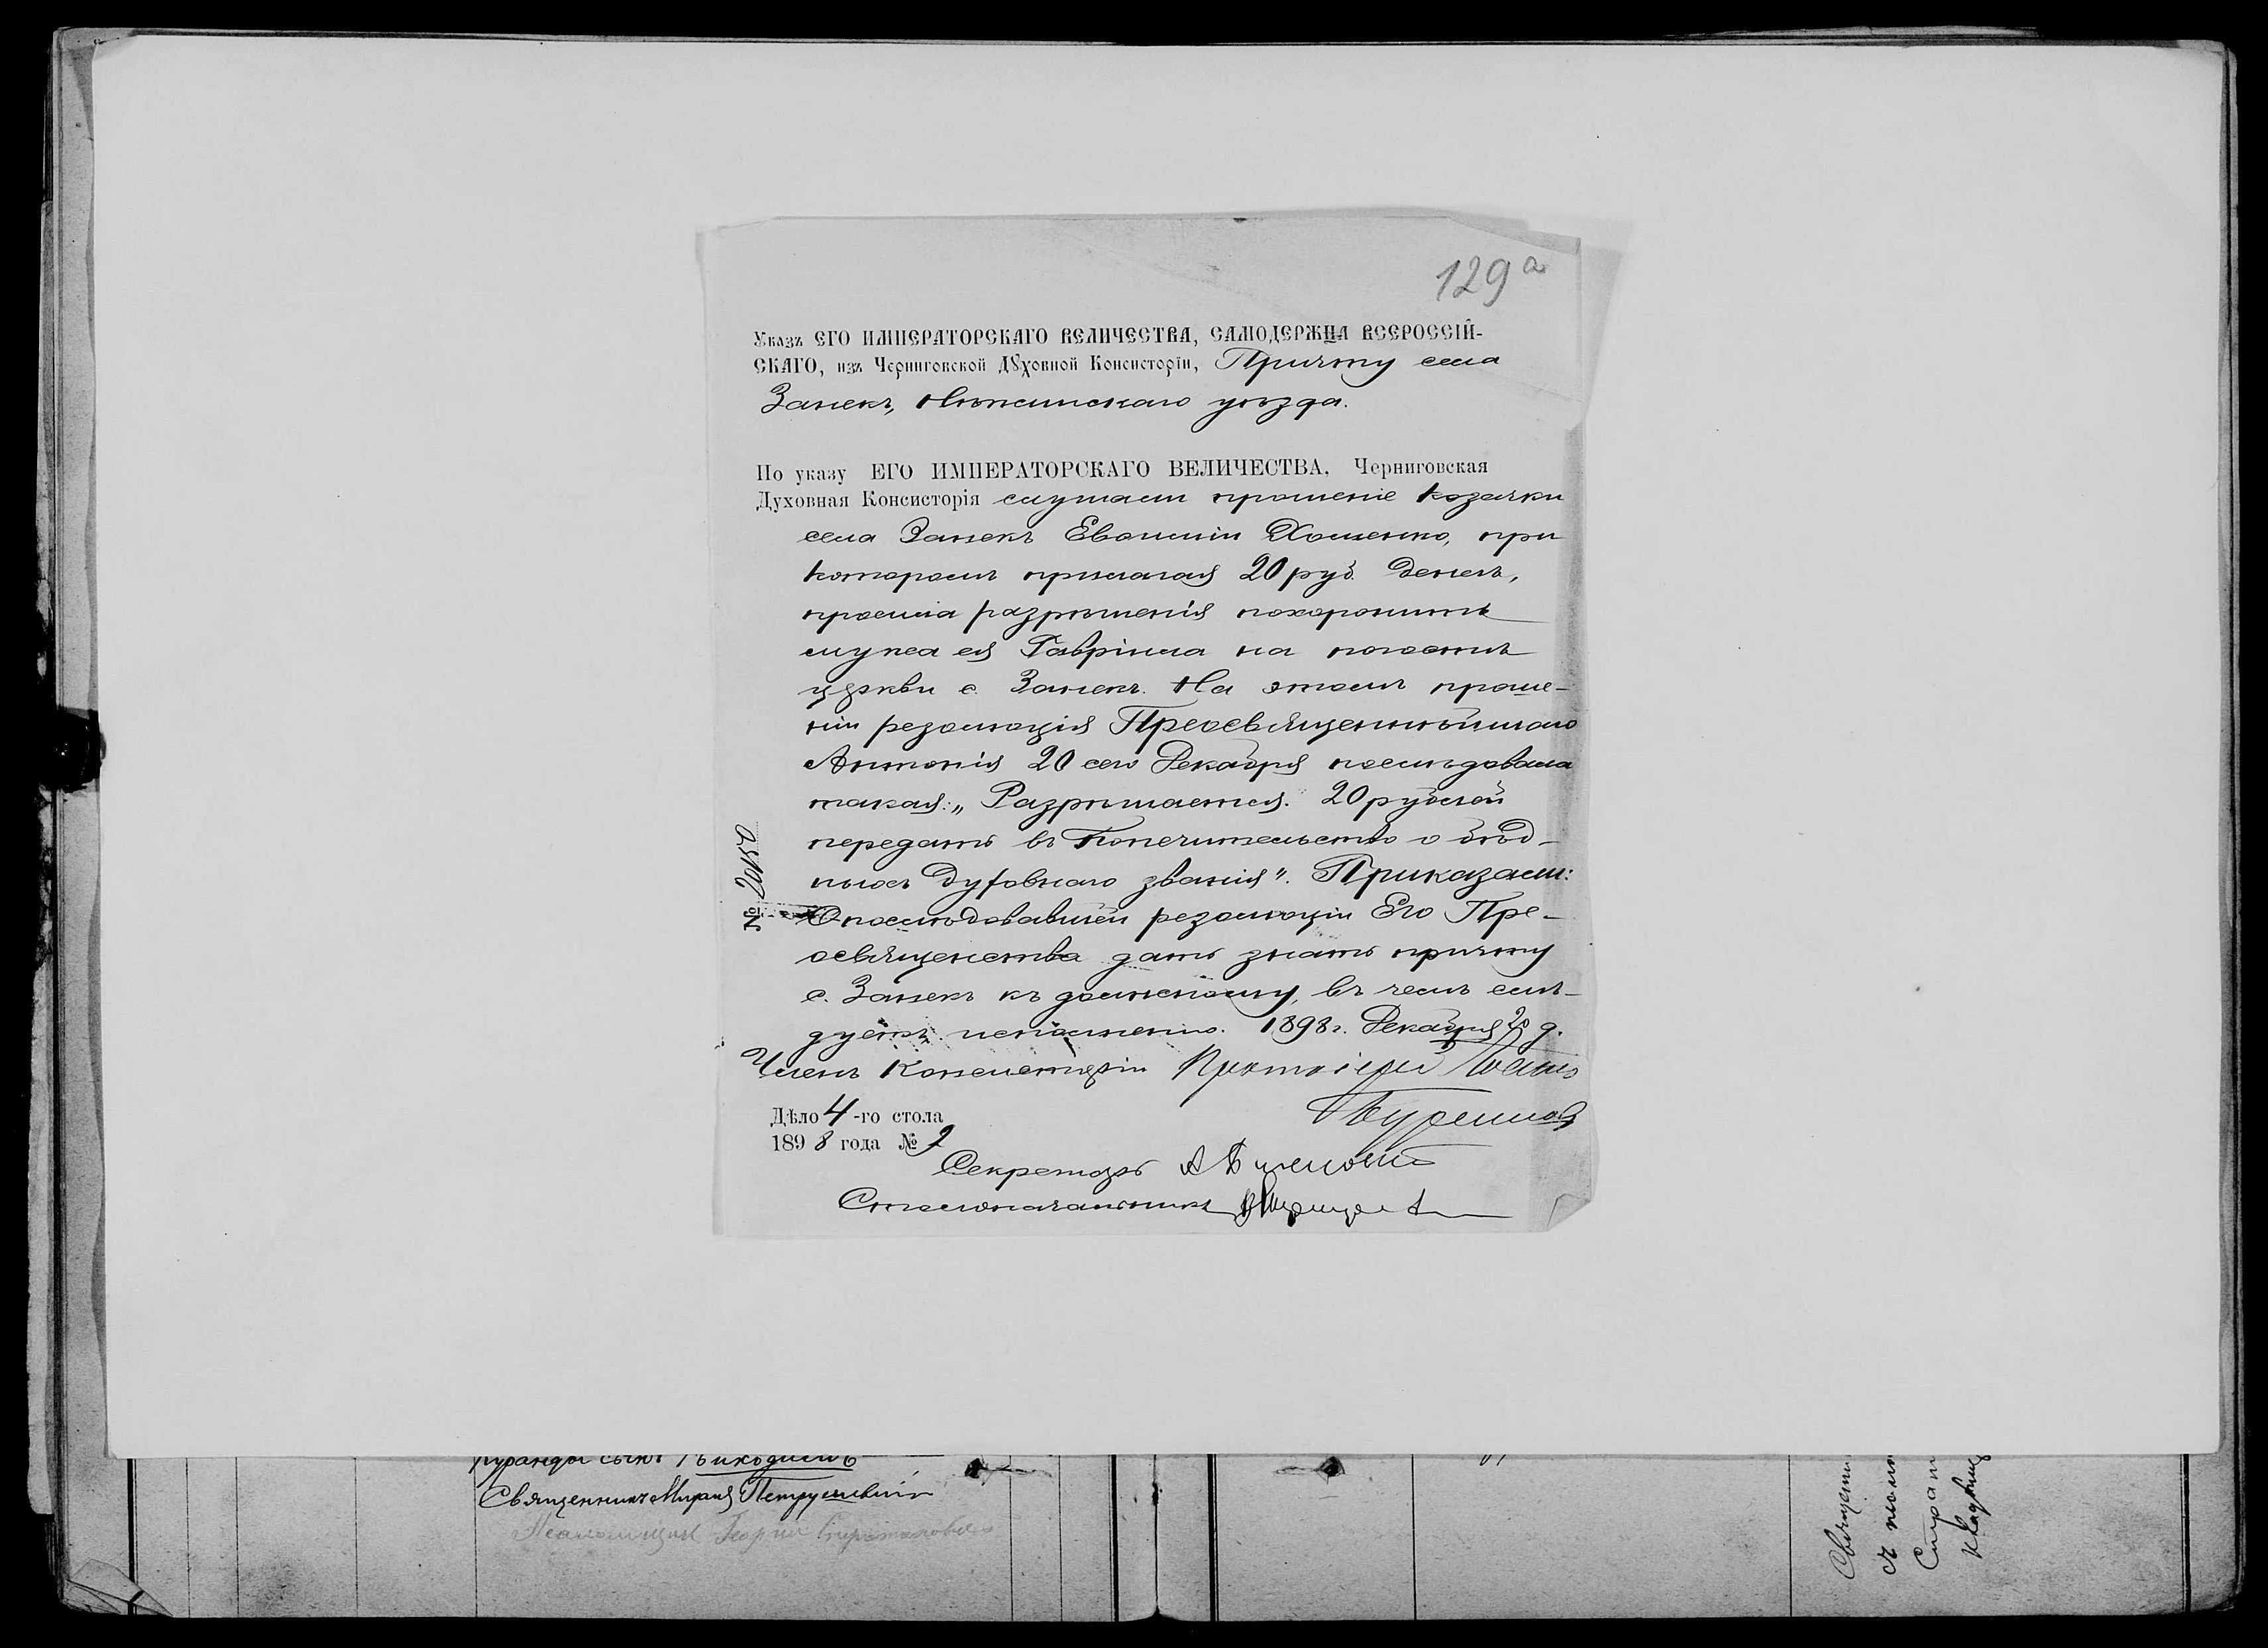 129а
Указъ ЕГО ИМПЕРАТОРСКАГО ВЕЛИЧЕСТВА, САМОДЕРЖЦА ВСЕРОССІЙ-
СКАГО, изъ Черниговской Дꙋховной Консисторіи, Причту села
Занекъ, Нѣжинскаго уѣзда.
По указу ЕГО ИМПЕРАТОРСКАГО ВЕЛИЧЕСТВА, Черниговская
Духовная Консисторія слушали прошеніе козачки
села Занекъ Евфиміи Хоменко, при
которомъ прилагая 20 руб. денегъ,
просила разрѣшенія похоронить
мужа ея Гавріила на погостѣ
церкви с. Занекъ. На этомъ проше-
ніи резолюція Преосвященнѣйшаго
Антонія 20 сего Декабря послѣдовала
такая: „Разрѣшается. 20 рублей
передать въ Попечительство о бѣд-
ныхъ духовнаго званія". Приказали:
О послѣдовавшей резолюціи Его Пре-
освященства дать знать причту
с. Занекъ къ должному, въ чемъ слѣ-
дуетъ исполненію. 1898 г. Декабря 20 д.
Членъ Консисторіи Протоіерей
№ 20150
Дѣло 4-го стола
1898 года № 2
Секретарь
Столоначальникъ
сынъ Никодимъ
Священникъ Миронъ Петрушевскій
Псаломщикъ Георгій
Священни
съ псалом